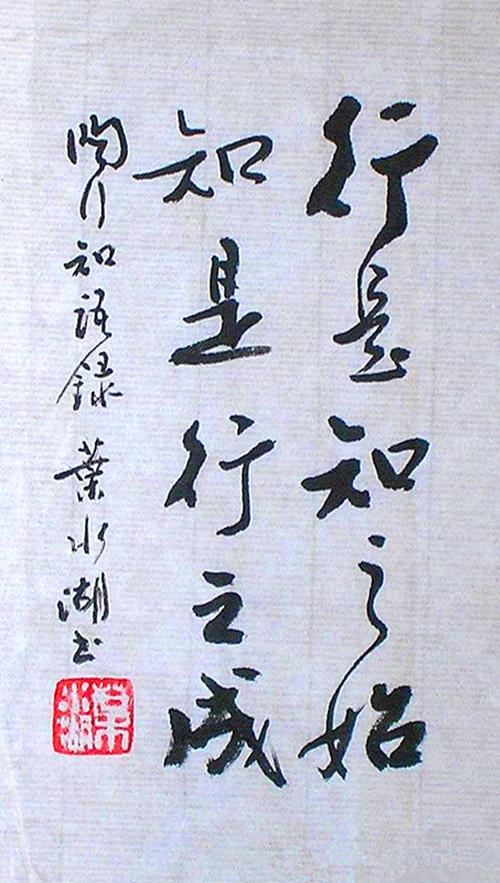 行是知之始
知是行之成
陶行知语錄 葉水湖书
葉水湖